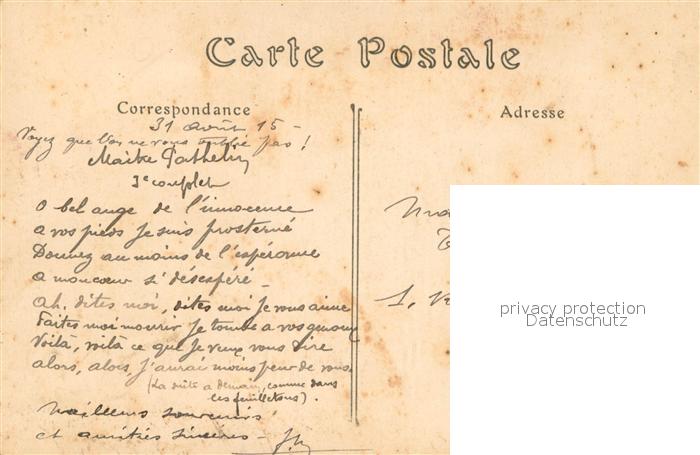 Carte Postale
Correspondance
Adresse
31 août 15 -
Voyez que l'on ne vous oublie pas !
Maître Pathelin
3e couplet
O bel ange de l'innocence
a vos pieds je suis prosterné
Donnez au moins de l'espérance
a mon coeur si désespéré -
Ah. dites moi, dites moi je vous aime
Faites moi mourir je tombe a vos genoux
Voilà, voilà ce que je veux vous dire
alors, alors, j'aurai moins peur de vous
(La suite a demain, comme dans
les feuilletons).
Meilleurs souvenirs
et amitiés sincères -
1,
privacy protection
Datenschutz